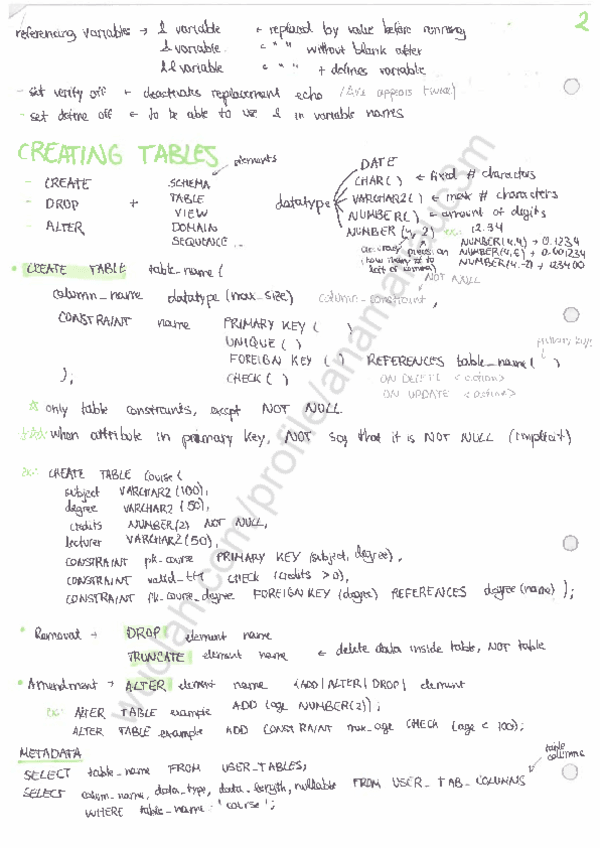 2
referencing variables → & variable ← replaced by value before running
& variable. " " without blank after
&& variable " " + defines variable
- set verify off ← deactivates replacement echo (&'s appears twice)
- set define off ← to be able to use & in variable names
CREATING TABLES
elements
- CREATE SCHEMA
- DROP + TABLE
- ALTER VIEW
DOMAIN
SEQUENCE ...
datatype
DATE
CHAR( ) ← fixed # characters
VARCHAR2( ) ← max # characters
NUMBER( ) ← amount of digits
NUMBER(4,2) ex: 12.34
NUMBER(4,4) → 0.1234
NUMBER(4,6) → 0.001234
NUMBER(4,-2) → 123400
accuracy precision
(how many # to left of comma)
• CREATE TABLE table_name (
NOT NULL
column_name datatype (max_size) column_constraint,
CONSTRAINT name PRIMARY KEY ( )
UNIQUE ( )
primary key
FOREIGN KEY ( ) REFERENCES table_name ( )
); CHECK ( ) ON DELETE <action>
ON UPDATE <action>
☆ only table constraints, except NOT NULL
when attribute in primary key, NOT say that it is NOT NULL (implicit)
ex: CREATE TABLE course (
subject VARCHAR2 (100),
degree VARCHAR2 (50),
credits NUMBER(2) NOT NULL,
lecturer VARCHAR2(50),
CONSTRAINT pk_course PRIMARY KEY (subject, degree),
CONSTRAINT valid_ CHECK (credits >0),
CONSTRAINT fk_course_degree FOREIGN KEY (degree) REFERENCES degree(name) );
• Removal → DROP element name
TRUNCATE element name ← delete data inside table, NOT table
• Amendment → ALTER element name {ADD | ALTER | DROP} element
ex: ALTER TABLE example ADD (age NUMBER(2));
ALTER TABLE example ADD CONSTRAINT max_age CHECK (age < 100);
METADATA
SELECT table_name FROM USER_TABLES;
table columns
SELECT column_name, data_type, data_length, nullable FROM USER_TAB_COLUMNS
WHERE table_name = 'course';
wuolah.com/profile/anamariauc3m